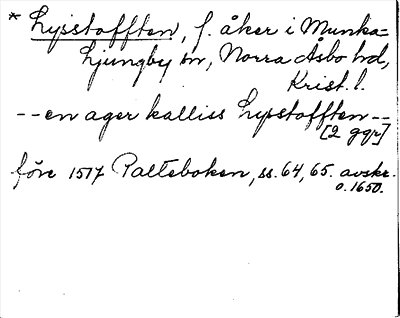 * Lysstofften, f. åker i Munka=
Ljungby sn, Norra Åsbo hd,
Krist. l.
-- en ager kalliss Lysstofften --
[2 ggr]
före 1517 Palteboken, ss. 64, 65. avskr.
o. 1650.